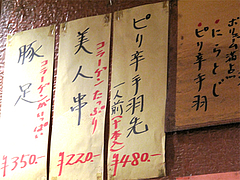 ボリューム満点
・にらとじ
・ピリ辛手羽
ピリ辛手羽先
一人前(4本入)
¥480-
美人串
コラーゲンたっぷり
¥220-
豚足
コラーゲンがいっぱい
¥350-